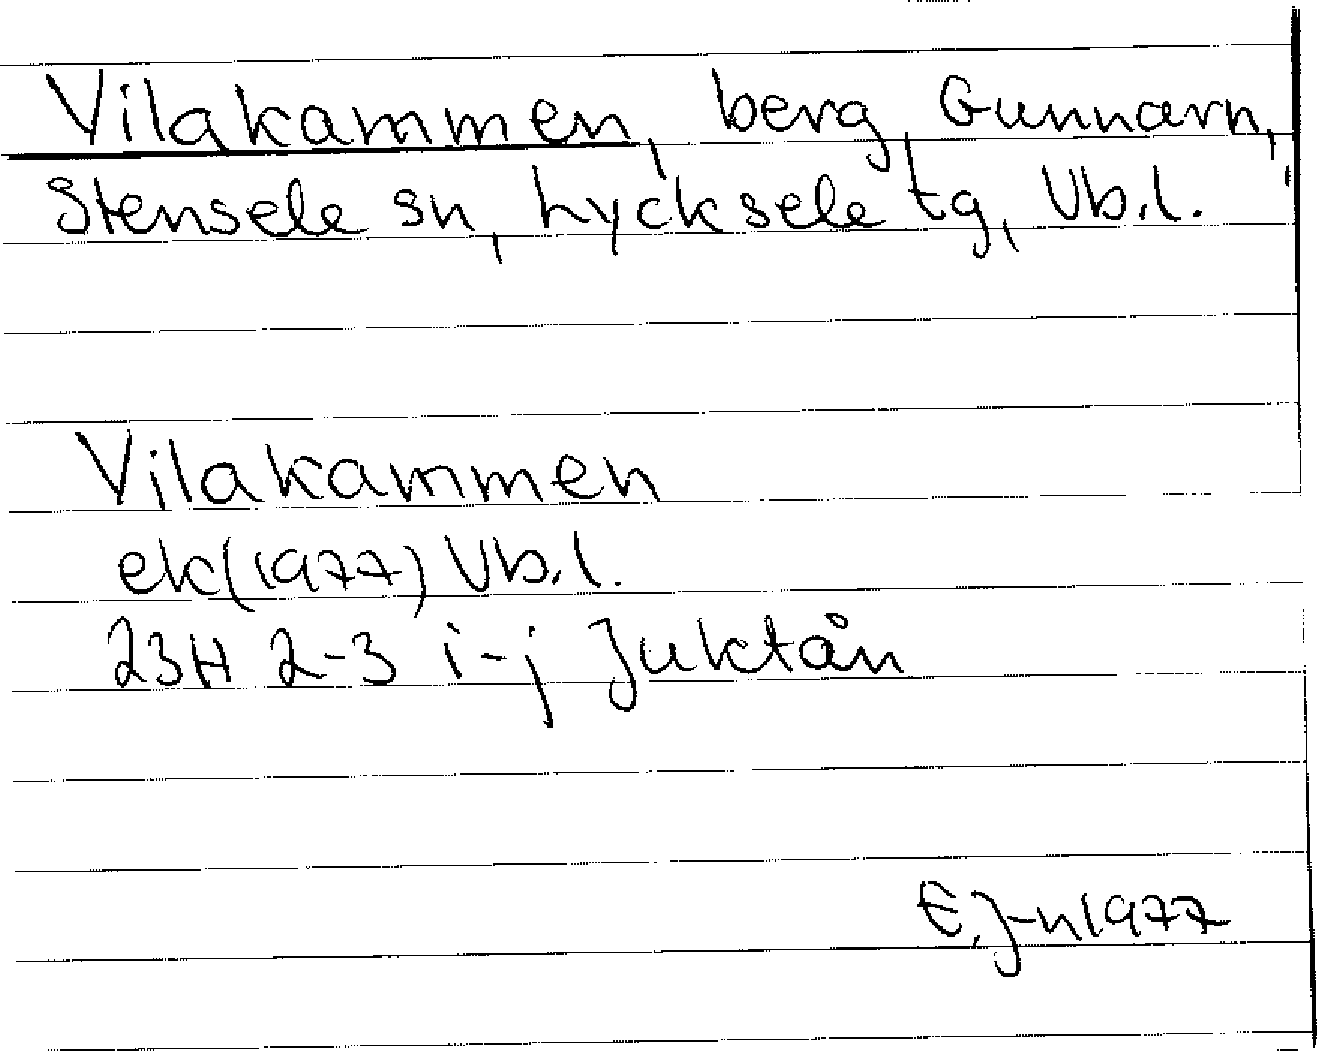 Vilakammen, berg, Gunnarn,
Stensele sn, Lycksele tg, Vb.l.
Vilakammen
ek(1977) Vb.l.
23H 2-3 i-j Juktån
E.J-n 1977